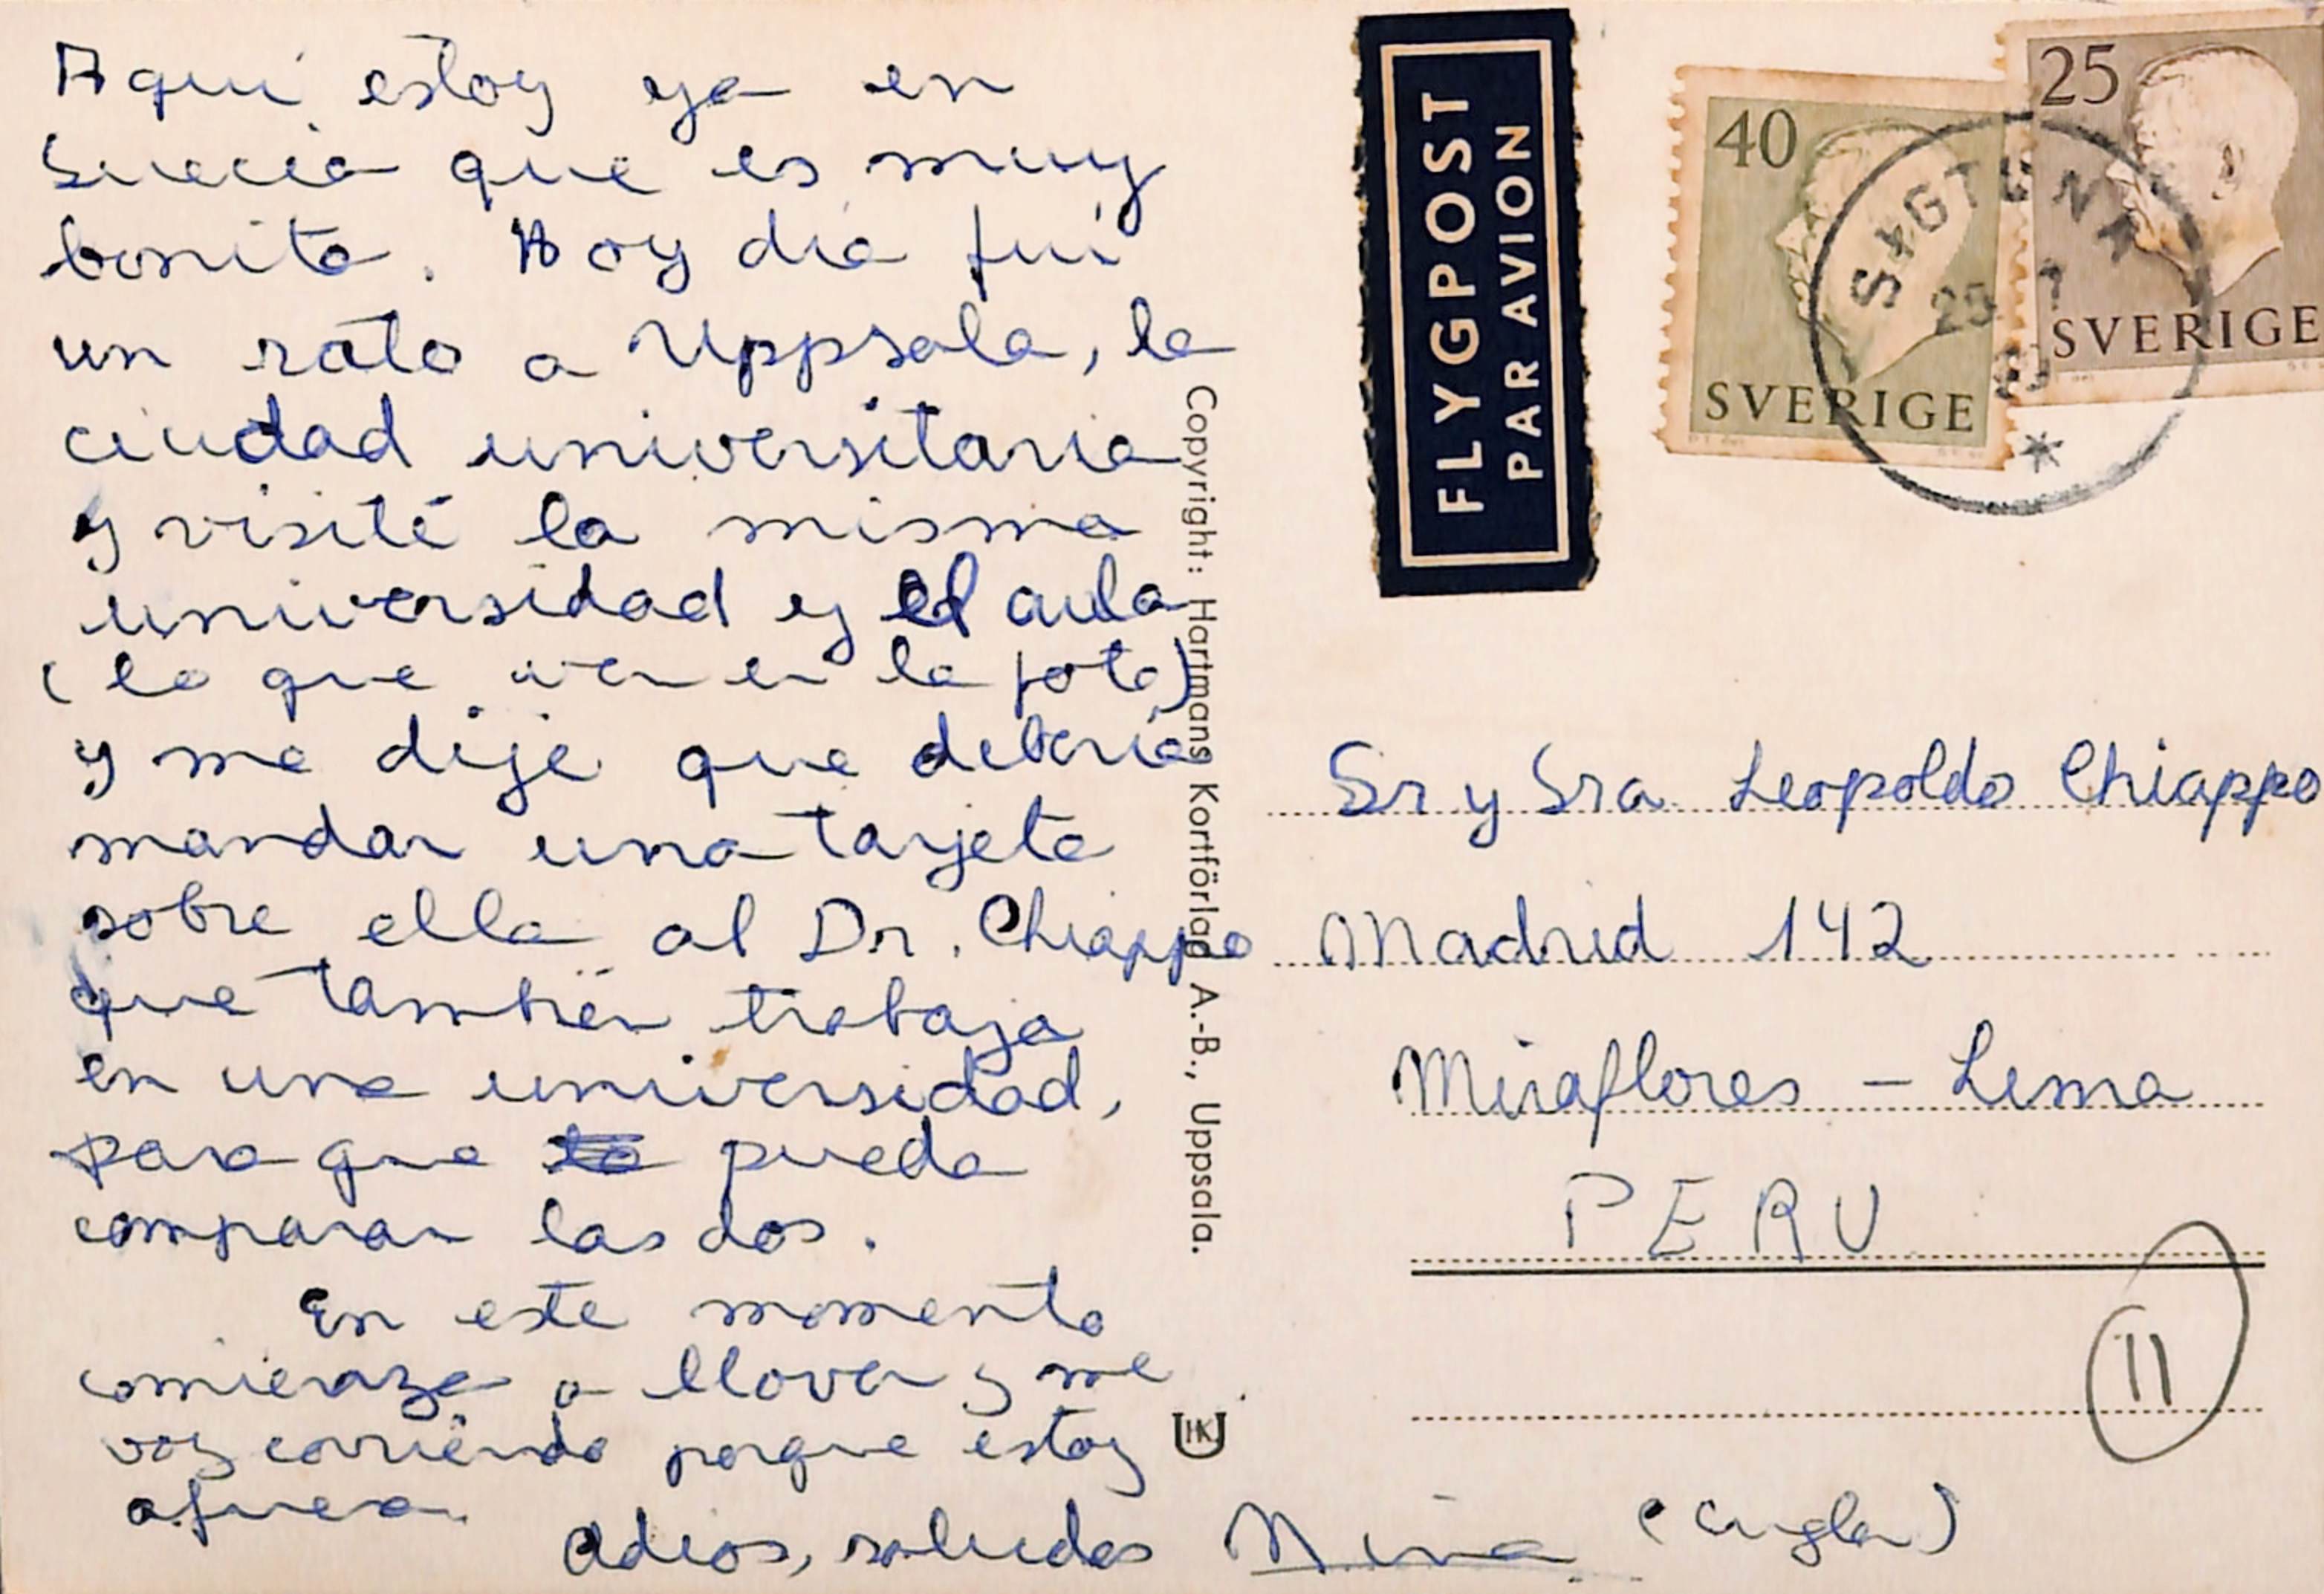 Aqui estoy ya en
Suecia que es muy
bonita. Hoy dia fui
un rato a Uppsala, la
ciudad universitaria
y visité la misma
universidad y el aula
(lo que ven en la foto)
y me dije que debería
mandar una tarjeta
sobre ella al Dr. Chiappo
que también trabaja
en una universidad,
para que pueda
comparar las dos.
En este momento
comienza a llover y me
voy corriendo porque estoy
afuera.
Adios, saludos Nina
Copyright: Hartmans Kortförlag A.-B., Uppsala.
HK
FLYGPOST
PAR AVION
40
SVERIGE
25
SVERIGE
SIGTUNA
25 7
Sr y Sra Leopoldo Chiappo
Madrid 142
Miraflores - Lima
PERU
11